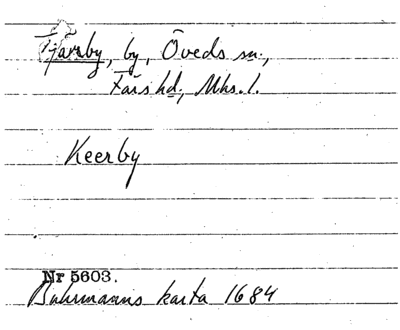 Tjärby, by, Öveds sn.,
Färs hd., Mhs. l.
Keerby
Nr 5603.
Buhrmanns karta 1684